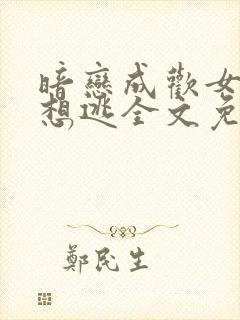 暗戀成歡女
想逃全文免
鄭民生